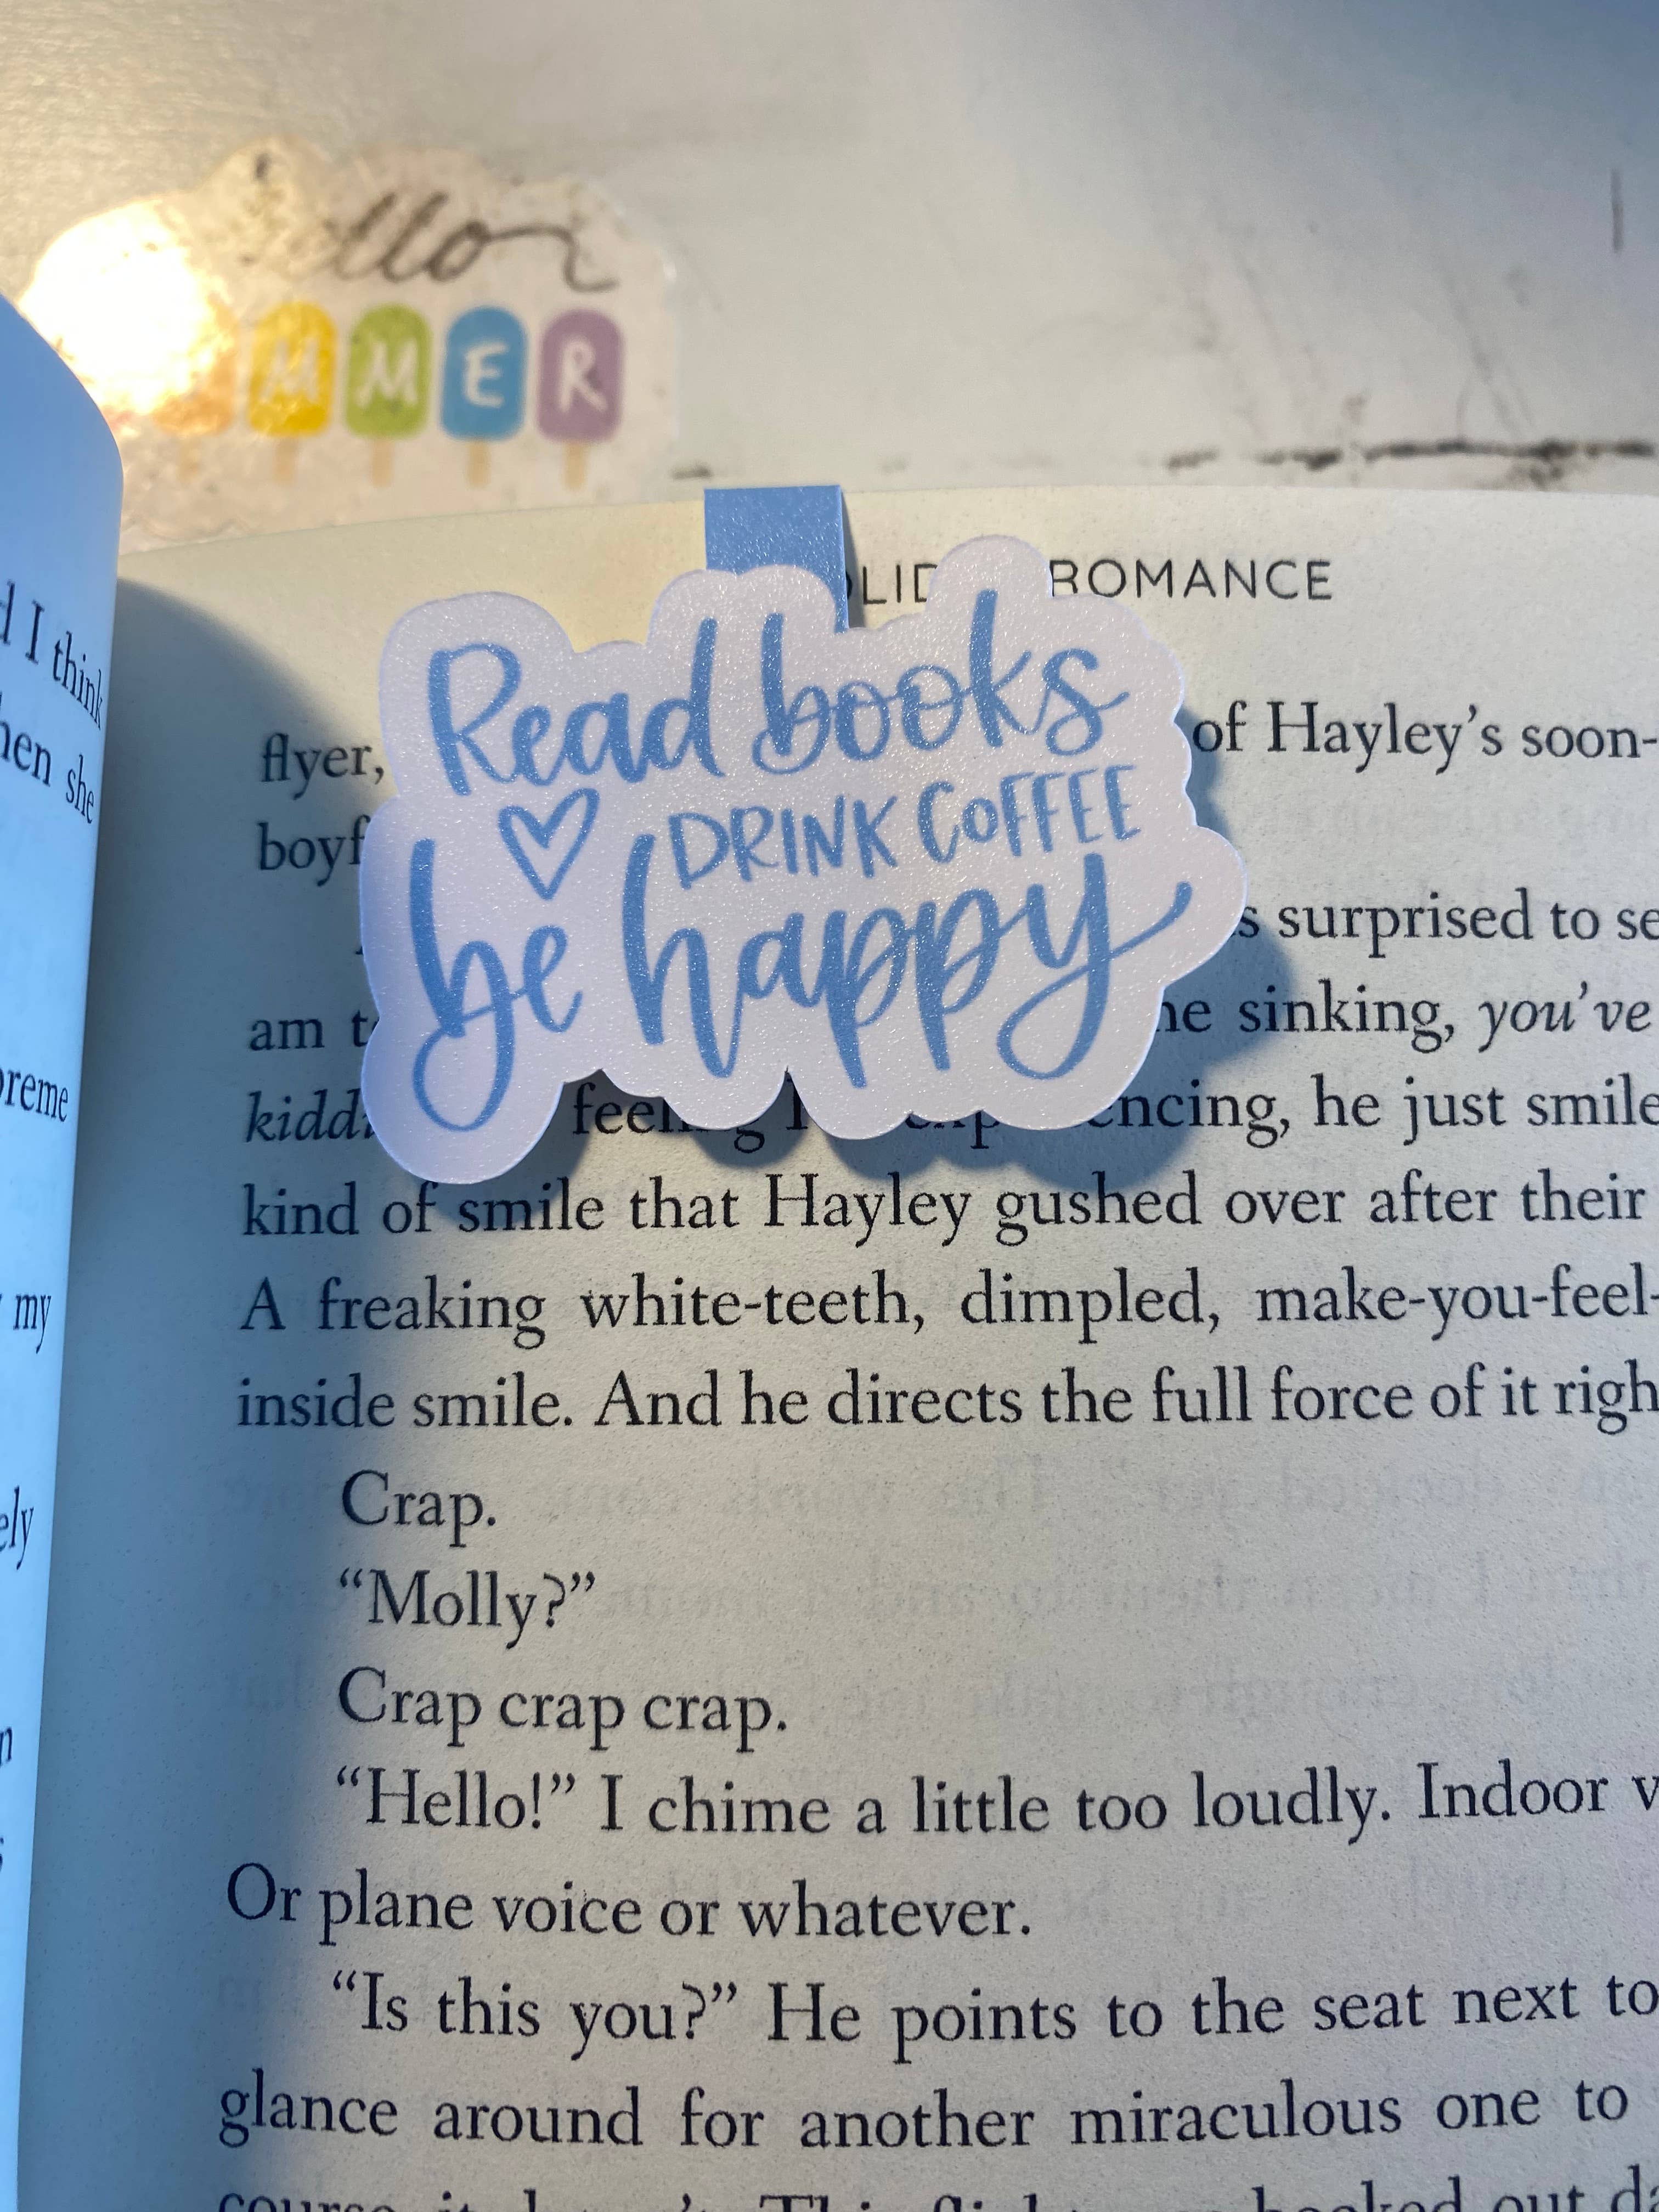 ello
MMER
ROMANCE
Read books
DRINK COFFEE
be happy
flyer, of Hayley’s soon-
surprised to
am sinking, you’ve
feeling he just
kind of smile that Hayley gushed over after their
A freaking white-teeth, dimpled, make-you-feel-
inside smile. And he directs the full force of it
Crap.
“Molly?”
Crap crap crap.
“Hello!” I chime a little too loudly. Indoor
Or plane voice or whatever.
“Is this you?” He points to the seat next to
glance around for another miraculous one to
I think
she
my